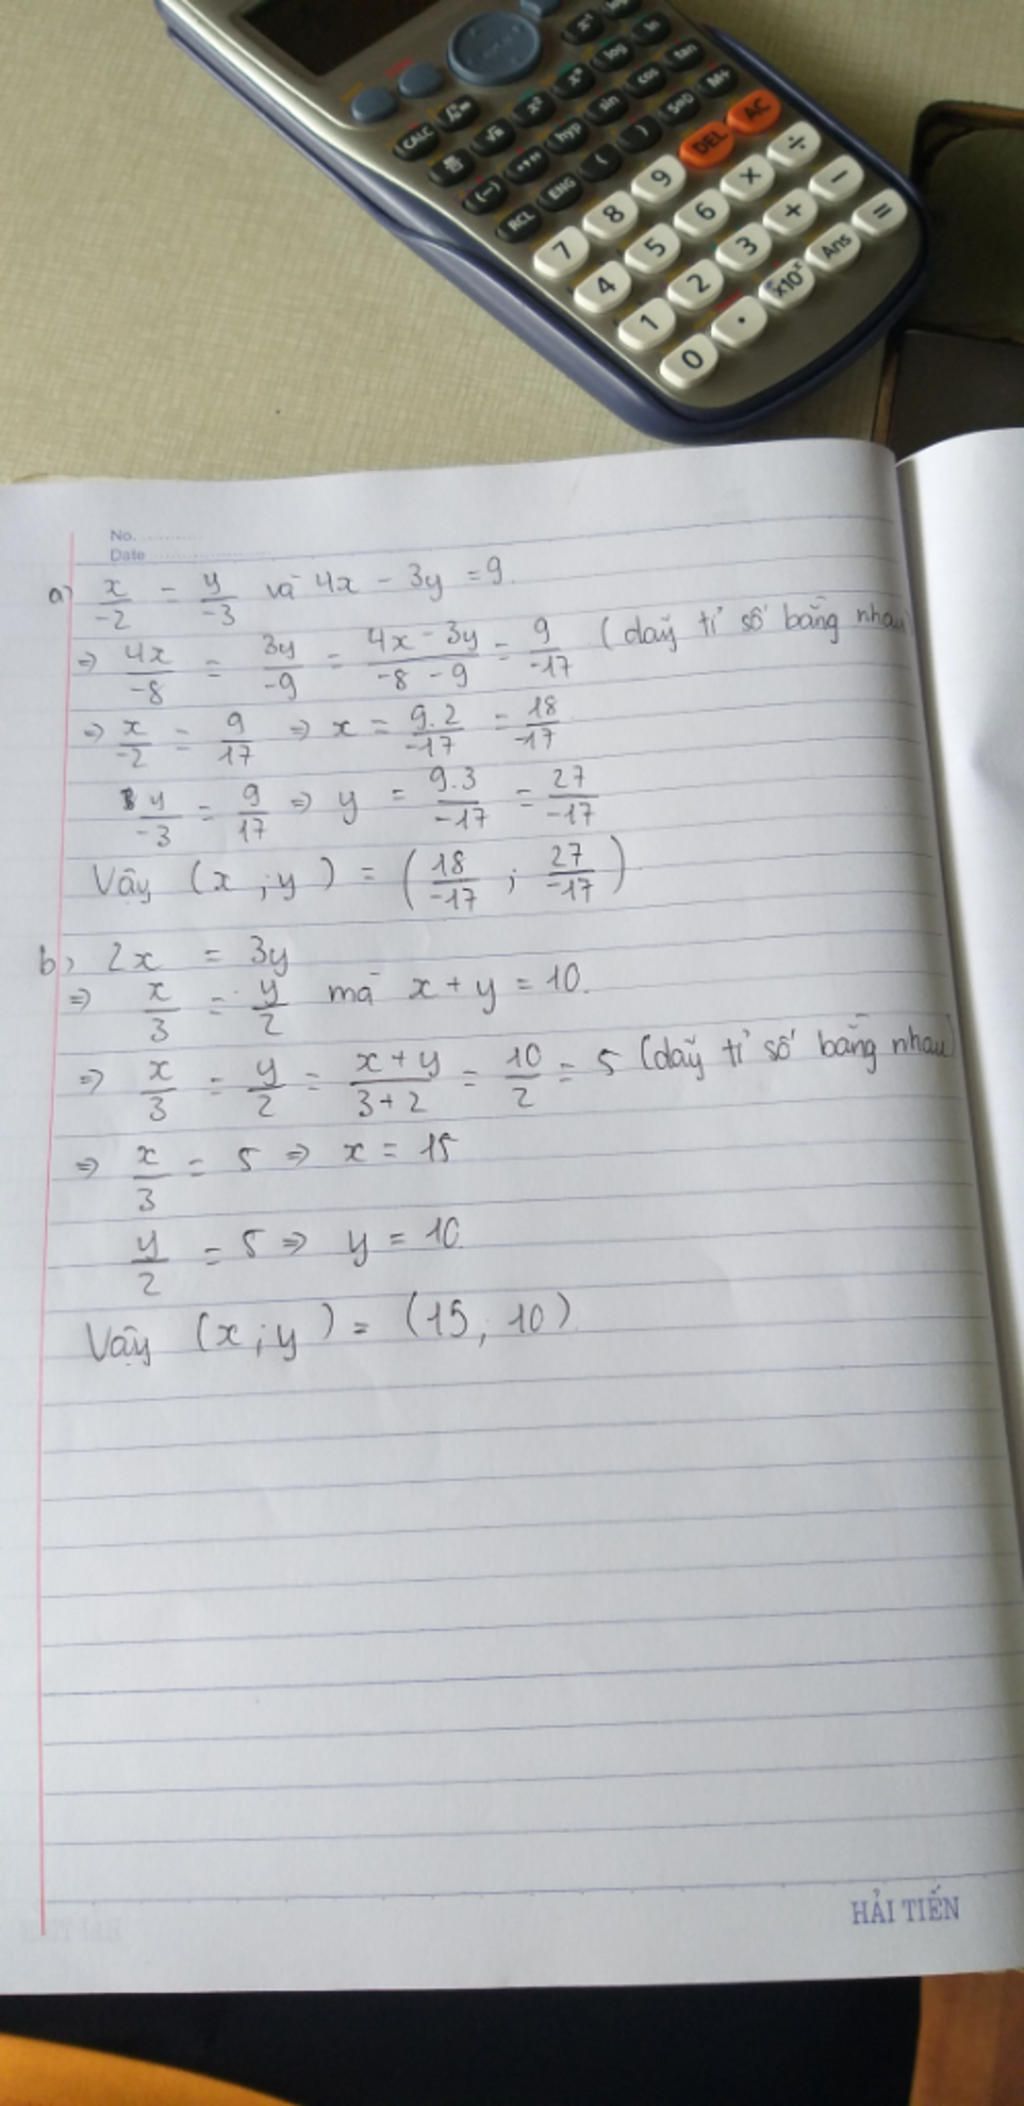 CALC
x²
xⁿ
log
ln
x⁻¹
(−)
hyp
sin
cos
tan
RCL
ENG
(
)
S⇔D
M+
7 8 9 DEL AC
4 5 6 × ÷
1 2 3 + −
0 . ×10ˣ Ans =
No.
Date
a) x/-2 = y/-3 và 4x - 3y = 9.
=> 4x/-8 = 3y/-9 = 4x - 3y/-8 - 9 = 9/-17 (dãy tỉ số bằng nhau)
=> x/-2 = 9/17 => x = 9.2/-17 = 18/-17
y/-3 = 9/17 => y = 9.3/-17 = 27/-17
Vậy (x ; y) = (18/-17 ; 27/-17)
b) 2x = 3y
=> x/3 = y/2 mà x + y = 10.
=> x/3 = y/2 = x + y/3 + 2 = 10/2 = 5 (dãy tỉ số bằng nhau)
=> x/3 = 5 => x = 15
y/2 = 5 => y = 10
Vậy (x ; y) = (15, 10)
HẢI TIẾN